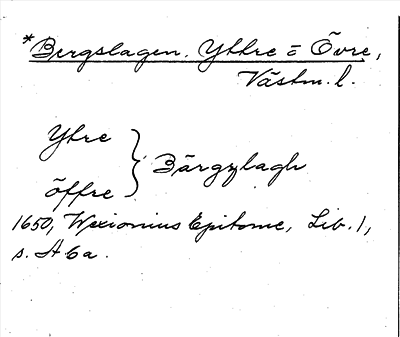 *Bergslagen. Yttre = Övre,
Västm. l.
Ytre
Bärgzlagh
öffre
1650, Wexionius Epitome, Lib. 1,
s. A 6a.